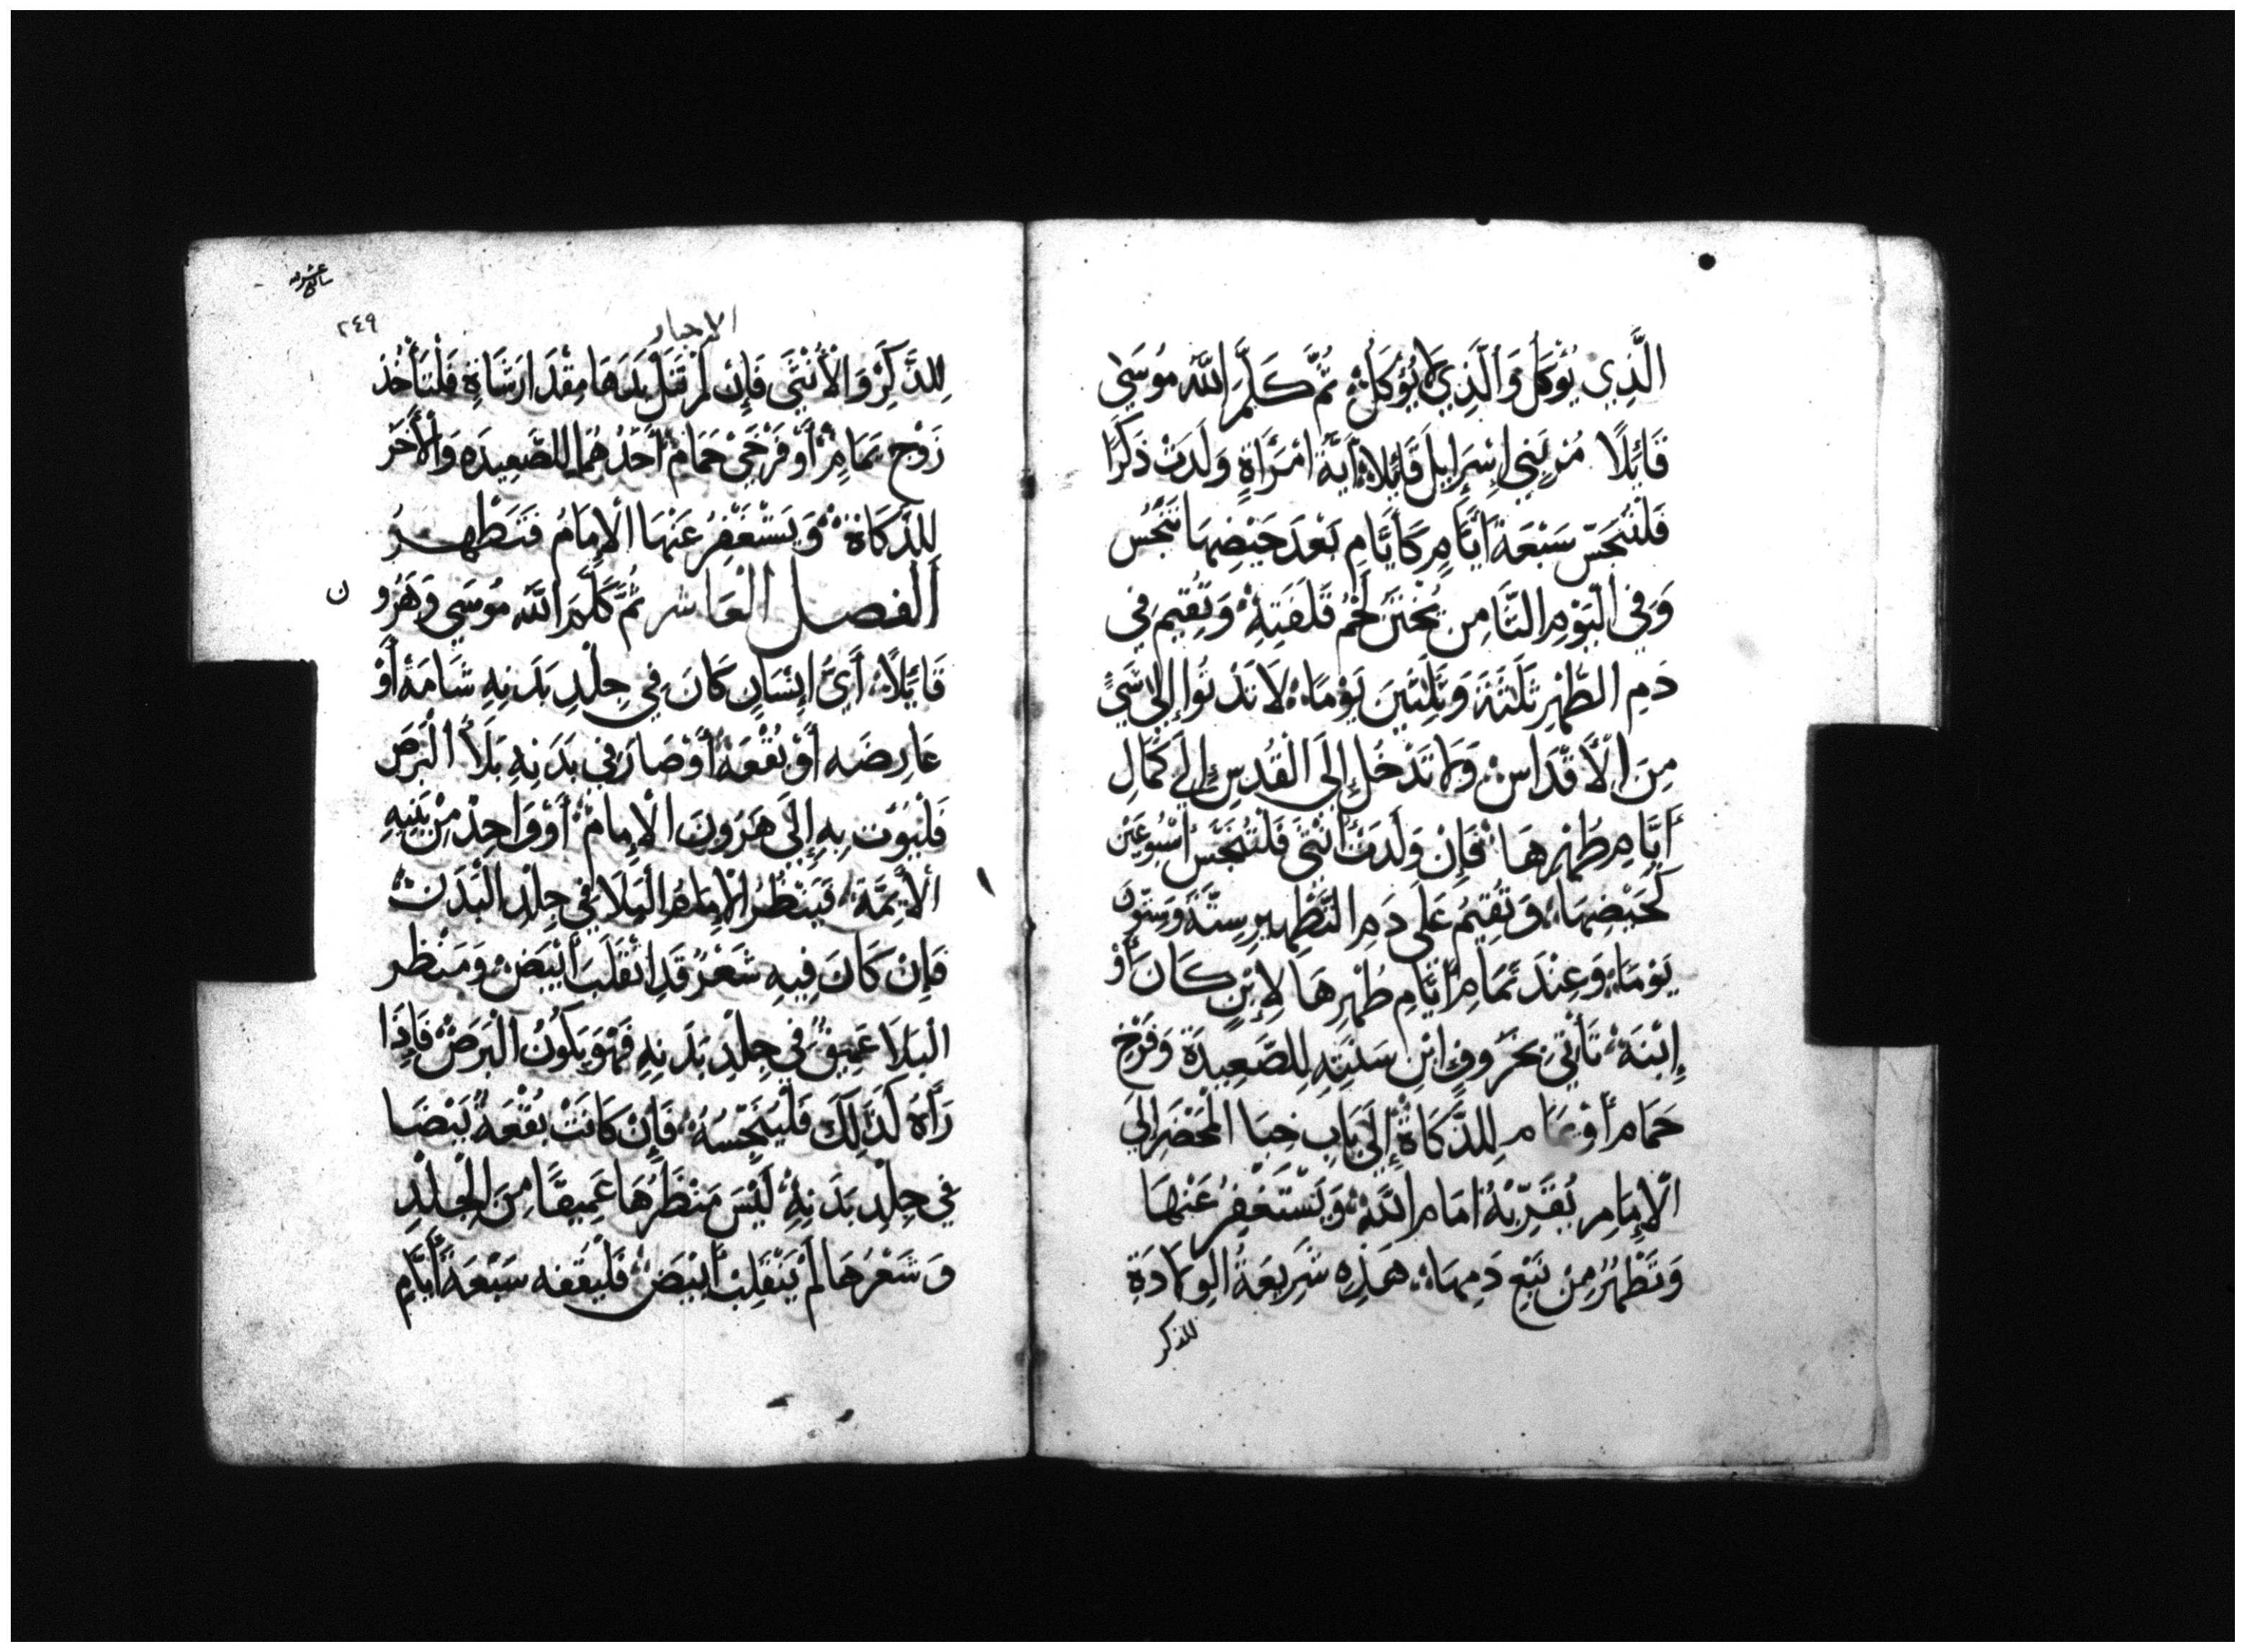 الَّذِي يُؤكَلُ وَالَّذِي لَا يُؤكَلُ ثُمَّ كَلَّمَ اللّه مُوسَى
قَائِلًا مُرْ بَنِي إِسْرَايِلَ قَائِلًا أَيَّةُ امْرَاَةٍ وَلَدَتْ ذَكَرًا
فَلْتُنَجَّسْ سَبْعَةَ أَيَّامٍ كَأَيَّامِ بَعْدَ حَيْضِهَا تَنَجَّسُ
وَفِي الْيَوْمِ الثَّامِنِ يُخْتَنُ لَحْمُ قَلَفَتِهِ وَتُقِيمُ فِي
دَمِ الطُّهْرِ ثَلَثَةَ وَثَلَثِينَ يَوْمًا لَا تَدْنُوا إِلَى شَيْءٍ
مِنَ الْأَقْدَاسِ وَلَا تَدْخُلْ إِلَى الْقُدْسِ إِلَى كَمَالِ
أَيَّامِ طُهْرِهَا فَإِنْ وَلَدَتْ أُنْثَى فَلْتُنَجَّسْ أُسْبُوعَيْنِ
كَحَيْضِهَا وَتُقِيمُ عَلَى دَمِ التَّطْهِيرِ سِتَّةً وَسِتُّونَ
يَوْمًا وَعِنْدَ تَمَامِ أَيَّامِ طُهْرِهَا لِابْنٍ كَانَ أَوْ
إِبْنَةٍ تَأْتِي بِخَرُوفٍ ابْنِ سَنَتِهِ لِلصَّعِيدَةِ وَفَرْخِ
حَمَام أَوْ يَمَام لِلذَّكَاةِ إِلَى بَابِ خِبَا الْمَحْضَرِ إِلَى
الْإِمَامِ يُقَرِّبُهُ أَمَامَ اللَّهِ وَيَسْتَغْفِرُ عَنْهَا
وَتَطْهُرُ مِنْ نَبْعِ دَمِهَا هَذِهِ شَرِيعَةُ الوِلَادَةِ
للذكر
٢٤٩
الاحبار
لِلذَّكَرِ وَالْأُنْثَى فَإِنْ لَمْ تَنَلْ يَدهَا مِقْدَارَ شَاةٍ فَلْتَأْخُذ
زَوْجَ يَمَامٍ أَوْ فَرْخَيْ حَمَامٍ أَحَدُهُمَا لِلصَّعِيدَه وَالْأَخَرُ
لِلذَكَاة وَيَسْتَغْفِرُ عَنْهَا الْإِمَامُ فَتَطْهُرُ
الفصل العَاشر ثُمَّ كَلَّمَ اللّه مُوسَى وَهَرُون
قَائِلًا أَيَّ إِنْسَانٍ كَانَ فِي جِلْدِ بَدَنِهِ شَامَةً أَوْ
عَارِضَه أَوْ بُقْعَةً أَوْ صَارَ فِي بَدَنِهِ بَلَأُ الْبَرَصِ
فَلْيُؤْت بِهِ إِلَى هَرُونَ الْإِمَامِ أَوْ وَاحِدٍ مِنْ بَنِيهِ
الْأَيِمَّةِ فَيَنْظُرُ الْإِمَامُ الْبَلَا فِي جِلْدِ الْبَدَن
فَإِنْ كَانَ فِيهِ شَعْرٌ قَدِ انْقَلَبَ أَبْيَضَ وَمَنْظر
الْبَلَا عَمِيقٌ فِي جِلْدِ بَدَنِهِ فَهُوَ يَكُونُ الْبَرَصَ فَإِذَا
رَأَهُ كَذَلِكَ فَلْيُنَجِّسُهُ فَإِنْ كَانَتْ بُقْعَةً بَيْضَا
فِي جِلْدِ بَدَنِهِ لَيْسَ مَنْظَرُهَا عَمِيقًا مِنَ الْجِلْدِ
وَشَعْرُهَا لَمْ يَنْقَلِبْ أَبْيَضَ فَلْيُقفه سَبْعَةَ أَيَّامٍ